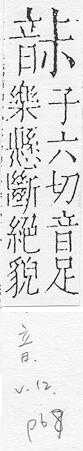 子六切音足
樂懸斷絕貌
音.
v.12.